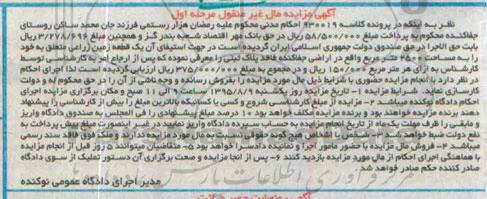 آگهی مزایده مال غیر منقول مرحله اول
نظر به اینکه در پرونده کلاسه ۹۳۰۰۱۹ احکام مدنی محکوم علیه رمضان هزار رستمی فرزند جان محمد ساکن روستای
جفاکنده محکوم به پرداخت مبلغ ۵۸/۵۰۰/۰۰۰ ریال در حق بانک مهر اقتصاد شعبه بندر گز و همچنین مبلغ ۳/۲۷۸/۶۹۶ ریال
بابت حق الاجرا در حق صندوق دولت جمهوری اسلامی ایران گردیده است در جهت استیفای آن یک قطعه زمین زراعی متعلق به خود
را به مساحت ۲۵۰۰ متر مربع واقع در اراضی جفاکنده فاقد پلاک ثبتی را معرفی نموده که پس از ارجاع امر به کارشناسی توسط
کارشناس به ازای هر متر مربع ۱۵۰/۰۰۰ ریال و در مجموع به مبلغ ۳۷۵/۰۰۰/۰۰۰ ریال ارزیابی گردیده است لذا اجرای احکام
نظر دارد با انجام مزایده حضوری با شرایط ذیل مال مورد مزایده را بفروش رسانده و وجه ناشی از آن را در حق محکوم له و دولت
کارسازی نماید. شرایط مزایده ۱- تاریخ مزایده روز یکشنبه ۱۳۹۵/۸/۹ ساعت ۹ الی ۱۱ صبح و مکان برگزاری مزایده اجرای
احکام دادگاه نوکنده میباشد ۲- مزایده از مبلغ کارشناسی شروع و کسی یا کسانیکه بالاترین مبلغ را بیش از کارشناسی را پیشنهاد
دهند برنده مزایده خواهند بود و برنده مزایده مکلف خواهد بود ۱۰ درصد مبلغ پیشنهادی را فی المجلس به صندوق دادگاه واریز
و مابقی را ظرف مهلت یکماه از تاریخ انجام مزایده به حساب سپرده دادگاه واریز نمایند در غیر اینصورت مبلغ پیش پرداخت به
نفع دولت ضبط خواهد شد ۳- شخص یا اشخاص هیچ گونه حقوقی نسبت به مال مورد مزایده ندارند و ملک فوق فاقد سند رسمی
میباشد ۴- فروش مال مزایده با حضور مامور اجرا و نماینده دادسرا خواهد بود ۵- متقاضیان میتوانند ۵ روز قبل از انجام مزایده
با هماهنگی اجرای احکام از مال مورد مزایده بازدید کنند ۶- پس از انجا مزایده و صحت برگزاری آن دستور تملیک از سوی دادگاه
صادر کننده حکم صادر خواهد شد.
مدیر اجرای دادگاه عمومی نوکنده